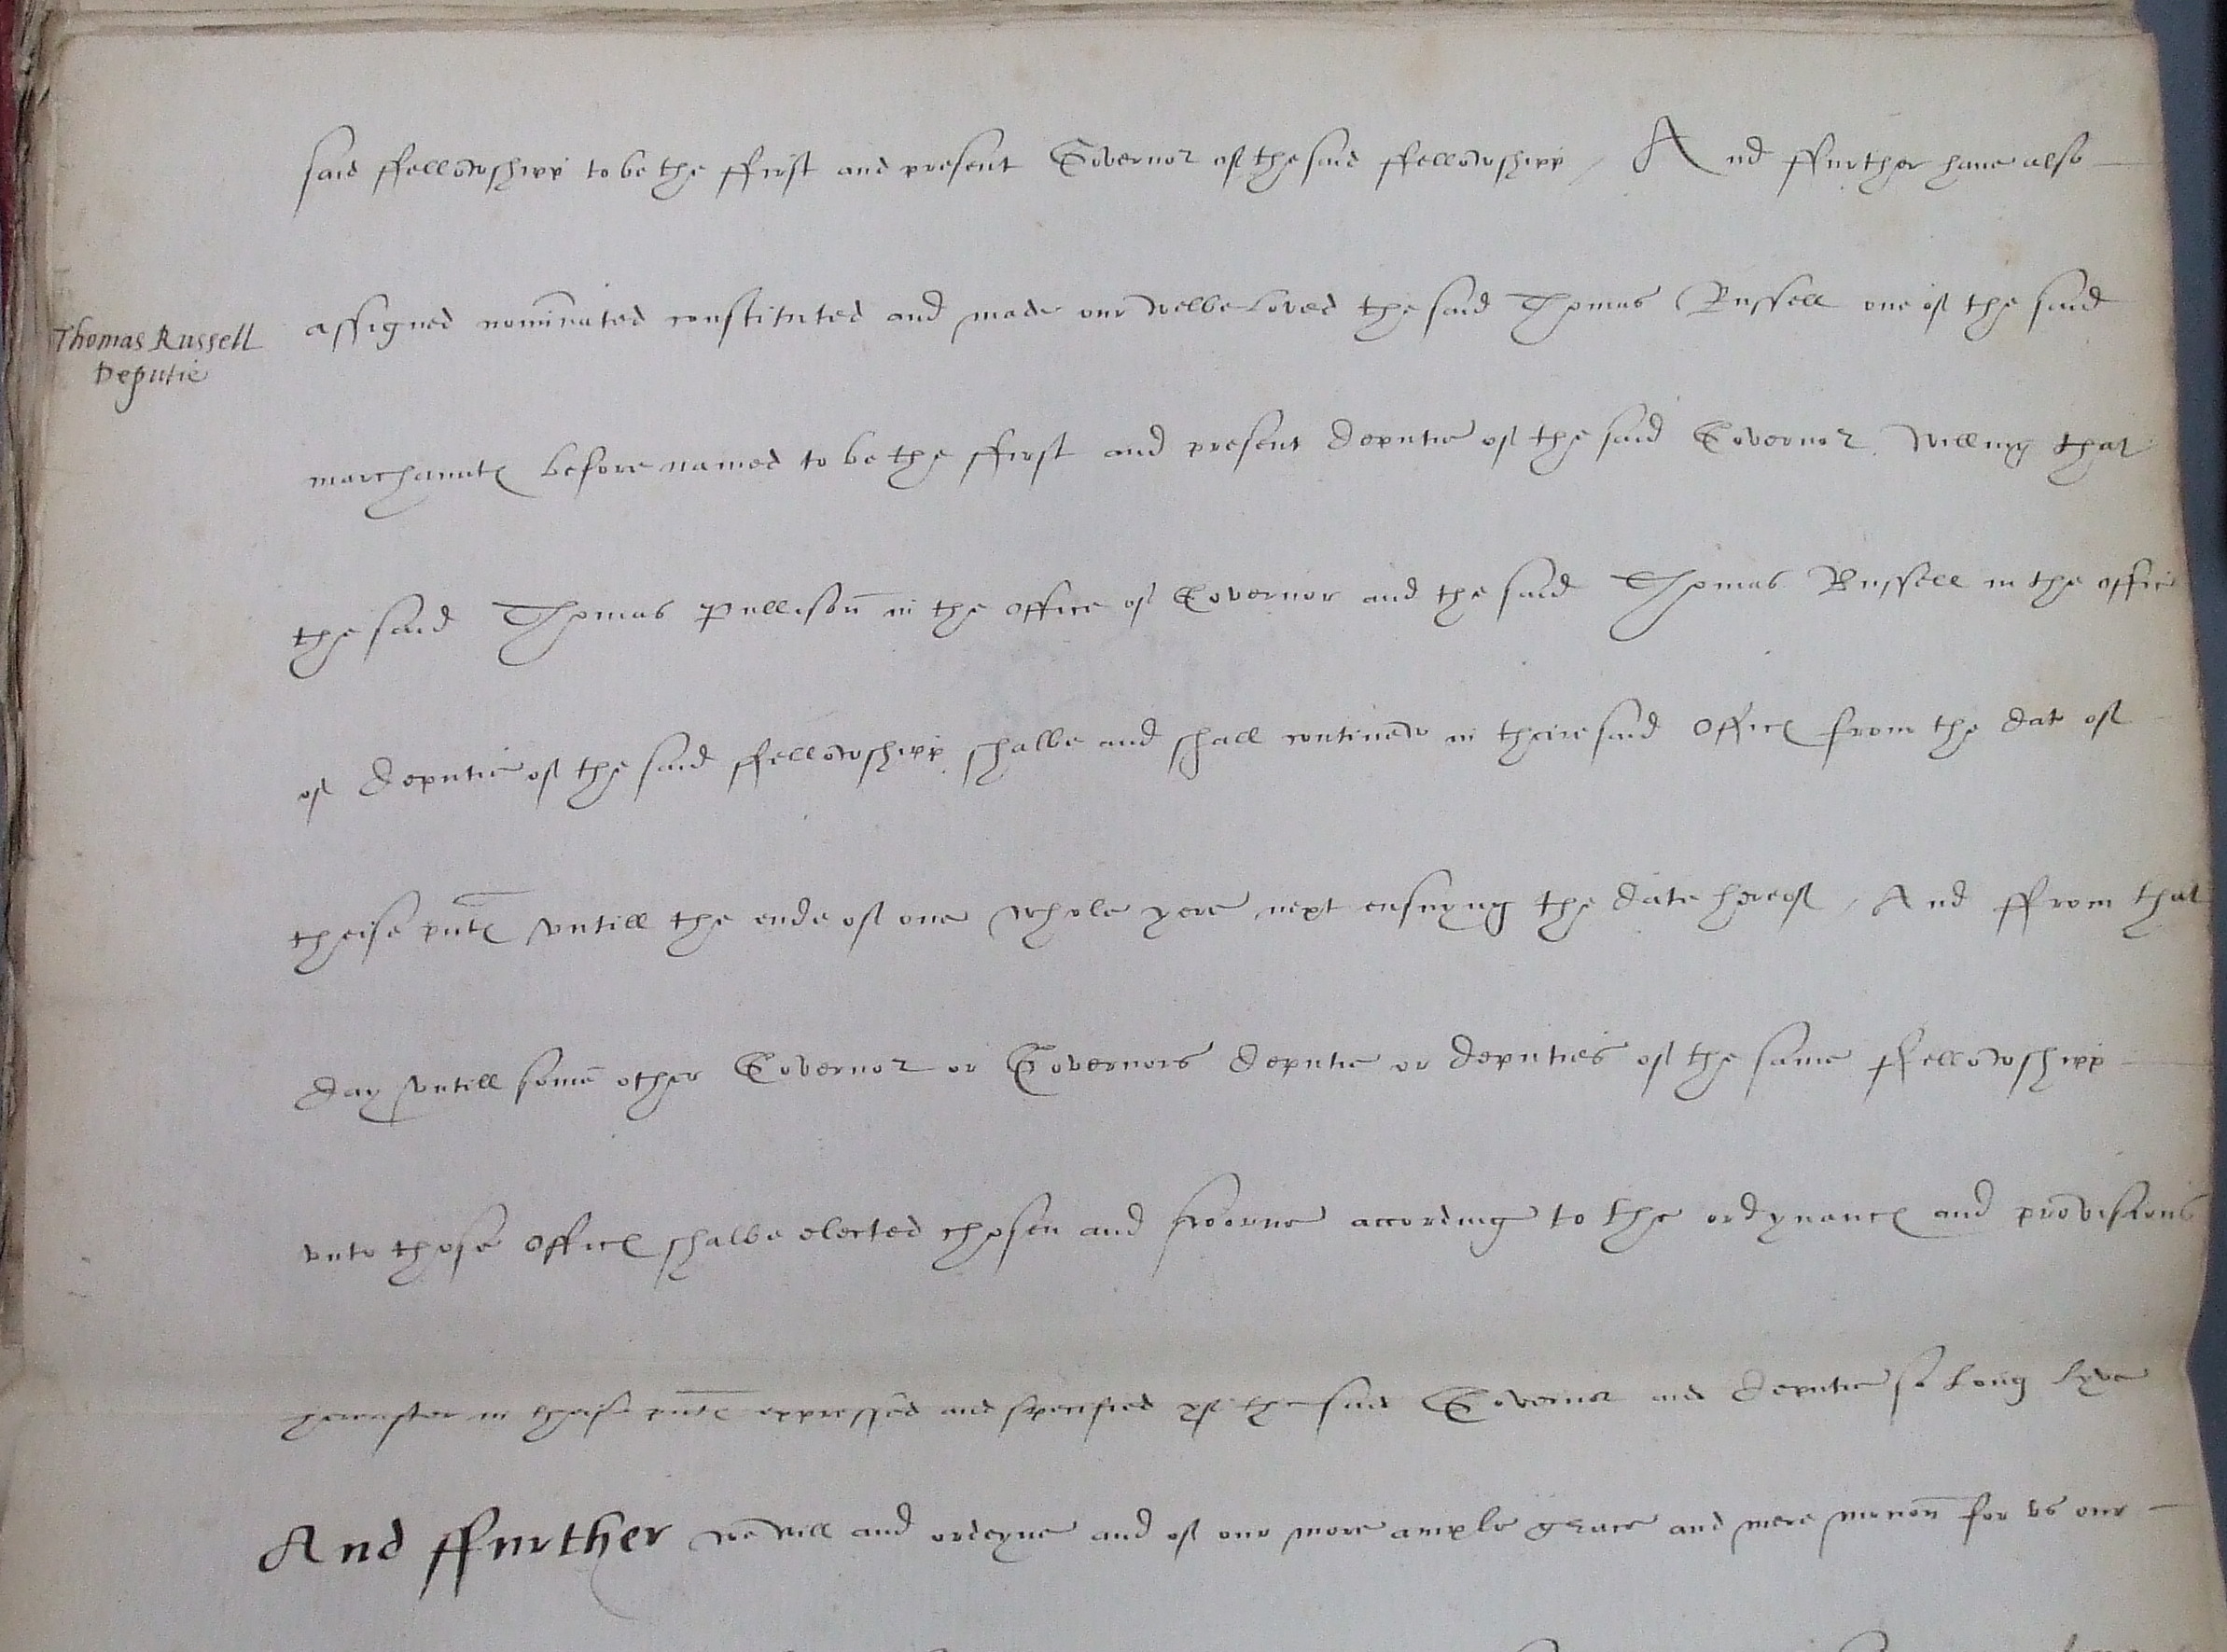 said ffellowshipp to be the ffirst and present Governor of the said ffellowshipp / And ffurther haue also
Thomas Russell
Deputie
assigned nominated constituted and made our welbeloved the said Thomas Russell one of the said
marchauntes before named to be the ffirst and present deputie of the said Governor willing that
the said Thomas Pullison in the office of Governor and the said Thomas Russell in the office
of deputie of the said ffellowshipp shalbe and shall continew in theire said offices from the dat of
theise pntes vntill the ende of one whole yere next ensuyng the date hereof / And ffrom that
day vntill some other Governor or Governors deputie or deputies of the same ffellowshipp
vnto those offices shalbe elected chosen and sworne accordinge to the ordynances and provisions
hereafter in theise pntes expressed and specified yf the said Governor and deputie so long lyve
And ffurther we will and ordeyne and of our more ample grace and mere for vs our